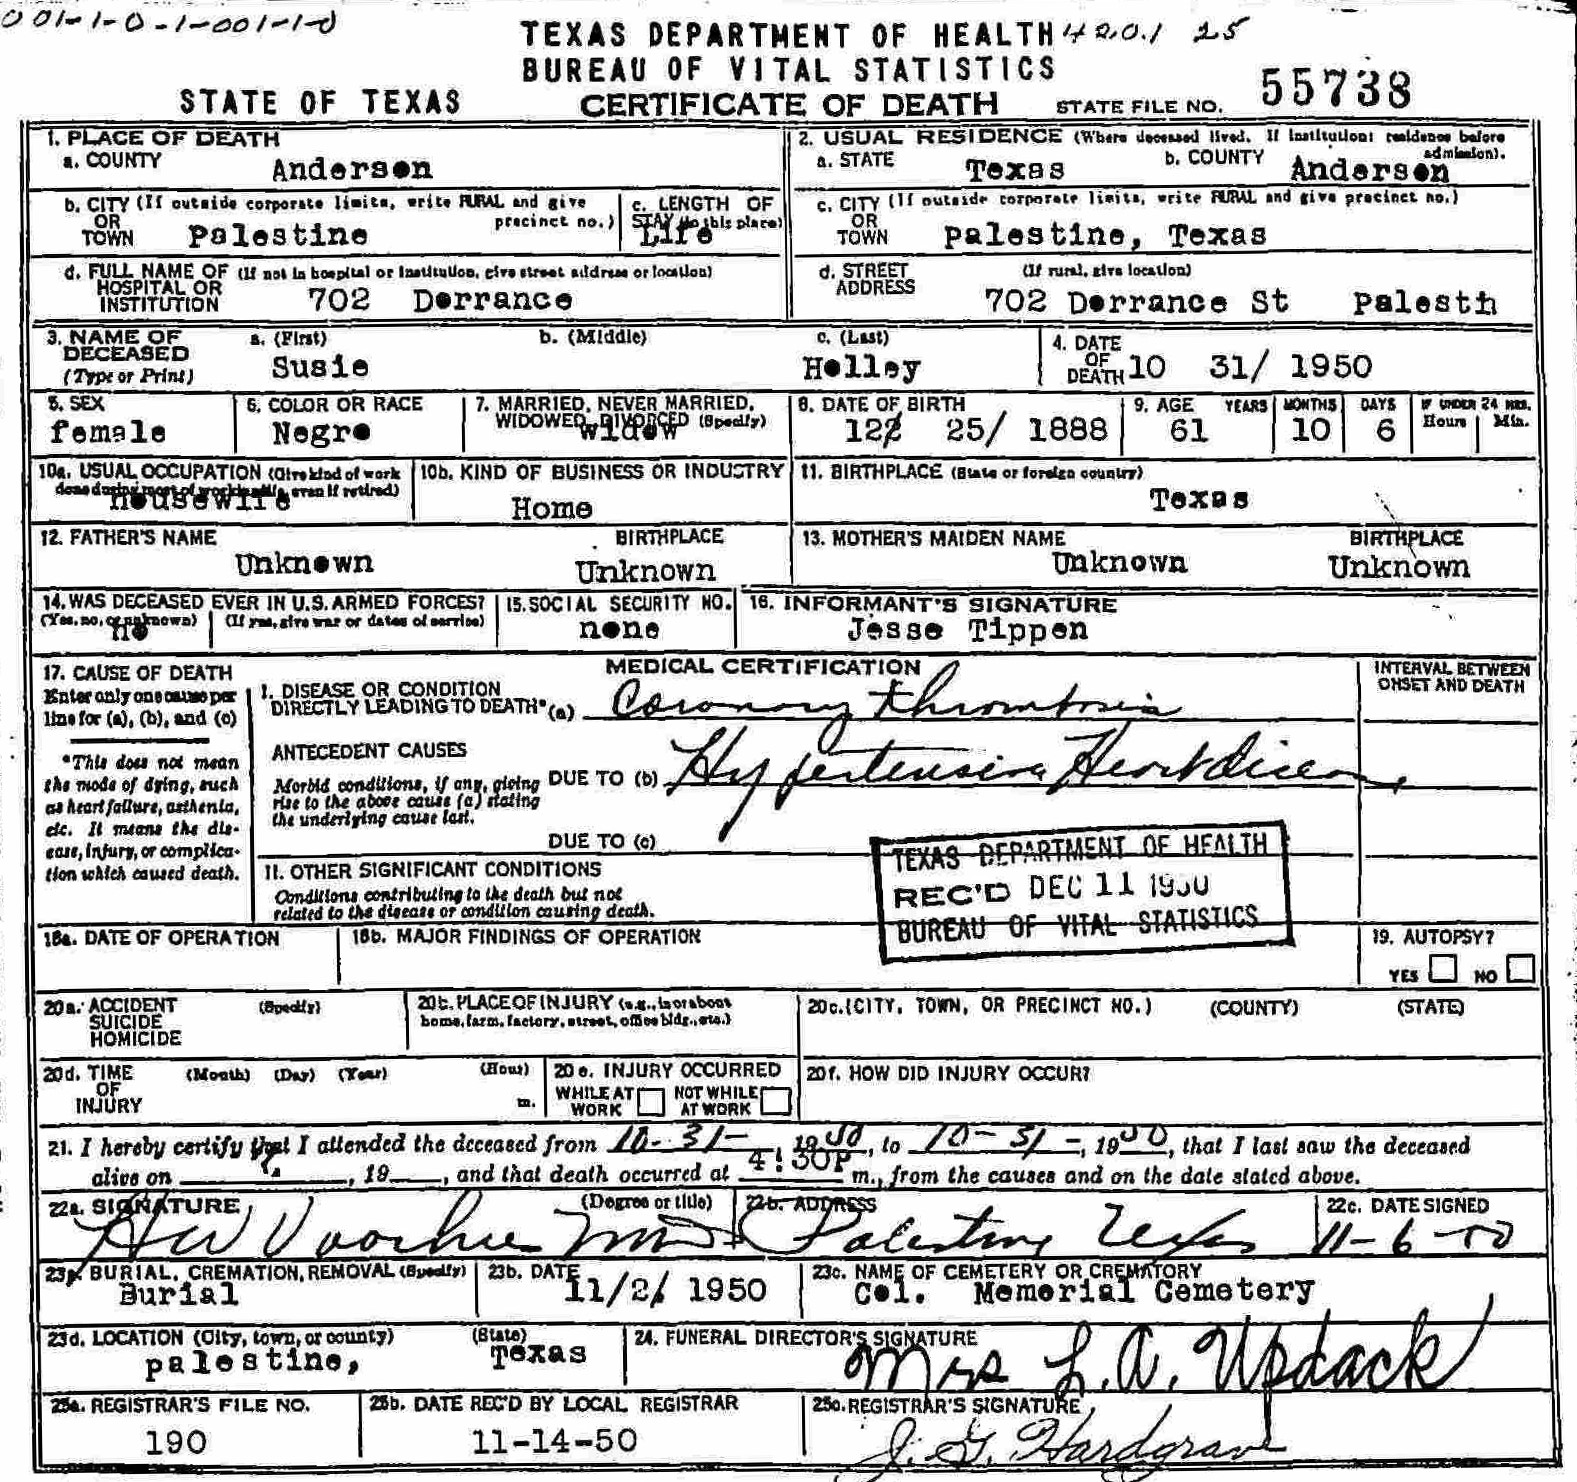 001-1-0-1-001-1-0
TEXAS DEPARTMENT OF HEALTH 4201 25
BUREAU OF VITAL STATISTICS
STATE OF TEXAS CERTIFICATE OF DEATH STATE FILE NO. 55738
1. PLACE OF DEATH
a. COUNTY Anderson
2. USUAL RESIDENCE (Where deceased lived. If institution: residence before admission).
a. STATE Texas b. COUNTY Anderson
b. CITY (If outside corporate limits, write RURAL and give precinct no.)
OR TOWN Palestine
c. LENGTH OF STAY (in this place) Life
c. CITY (If outside corporate limits, write RURAL and give precinct no.)
OR TOWN Palestine, Texas
d. FULL NAME OF (If not in hospital or institution, give street address or location)
HOSPITAL OR
INSTITUTION 702 Dorrance
d. STREET ADDRESS (If rural, give location)
702 Dorrance St Palesth
3. NAME OF DECEASED (Type or Print)
a. (First) b. (Middle) c. (Last)
Susie Holley
4. DATE OF DEATH 10 31/ 1950
5. SEX
female
6. COLOR OR RACE
Negro
7. MARRIED, NEVER MARRIED, WIDOWED, DIVORCED (Specify)
widow
8. DATE OF BIRTH
12 25/ 1888
9. AGE YEARS MONTHS DAYS IF UNDER 24 HRS. Hours Min.
61 10 6
10a. USUAL OCCUPATION (Give kind of work done during most of working life, even if retired)
housewife
10b. KIND OF BUSINESS OR INDUSTRY
Home
11. BIRTHPLACE (State or foreign country)
Texas
12. FATHER'S NAME BIRTHPLACE
Unknown Unknown
13. MOTHER'S MAIDEN NAME BIRTHPLACE
Unknown Unknown
14. WAS DECEASED EVER IN U.S. ARMED FORCES?
(Yes, no, or unknown) (If yes, give war or dates of service)
no
15. SOCIAL SECURITY NO.
none
16. INFORMANT'S SIGNATURE
Jesse Tippen
17. CAUSE OF DEATH
Enter only one cause per
line for (a), (b), and (c)
*This does not mean
the mode of dying, such
as heart failure, asthenia,
etc. It means the dis-
ease, injury, or complica-
tion which caused death.
MEDICAL CERTIFICATION
INTERVAL BETWEEN
ONSET AND DEATH
I. DISEASE OR CONDITION
DIRECTLY LEADING TO DEATH* (a) Coronary thrombosis
ANTECEDENT CAUSES
Morbid conditions, if any, giving
rise to the above cause (a) stating
the underlying cause last.
DUE TO (b) Hypertensive Heart disease
DUE TO (c)
II. OTHER SIGNIFICANT CONDITIONS
Conditions contributing to the death but not
related to the disease or condition causing death.
TEXAS DEPARTMENT OF HEALTH
REC'D DEC 11 1950
BUREAU OF VITAL STATISTICS
18a. DATE OF OPERATION
18b. MAJOR FINDINGS OF OPERATION
19. AUTOPSY?
YES NO
20a. ACCIDENT (Specify)
SUICIDE
HOMICIDE
20b. PLACE OF INJURY (e.g., in or about
home, farm, factory, street, office bldg., etc.)
20c. (CITY, TOWN, OR PRECINCT NO.) (COUNTY) (STATE)
20d. TIME (Month) (Day) (Year) (Hour)
OF
INJURY m.
20e. INJURY OCCURRED
WHILE AT WORK NOT WHILE AT WORK
20f. HOW DID INJURY OCCUR?
21. I hereby certify that I attended the deceased from 10-31-, 1950, to 10-31-, 1950, that I last saw the deceased
alive on , 19 , and that death occurred at 4:30P m., from the causes and on the date stated above.
22a. SIGNATURE (Degree or title)
HW Voorhies MD
22b. ADDRESS
Palestine Texas
22c. DATE SIGNED
11-6-50
23a. BURIAL, CREMATION, REMOVAL (Specify)
Burial
23b. DATE
11/2/ 1950
23c. NAME OF CEMETERY OR CREMATORY
Col. Memorial Cemetery
23d. LOCATION (City, town, or county) (State)
palestine, Texas
24. FUNERAL DIRECTOR'S SIGNATURE
Mrs L.A. Updack
25a. REGISTRAR'S FILE NO.
190
25b. DATE REC'D BY LOCAL REGISTRAR
11-14-50
25c. REGISTRAR'S SIGNATURE
J. G. Hardgrave